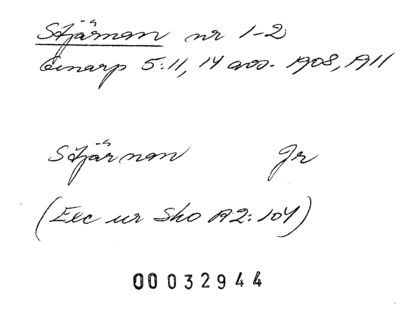 Stjärnan nr 1-2
Einarp 5:11, 14 avs. 1908, 1911
Stjärnan Gr
(Exc ur Sko A2:104)
00032944